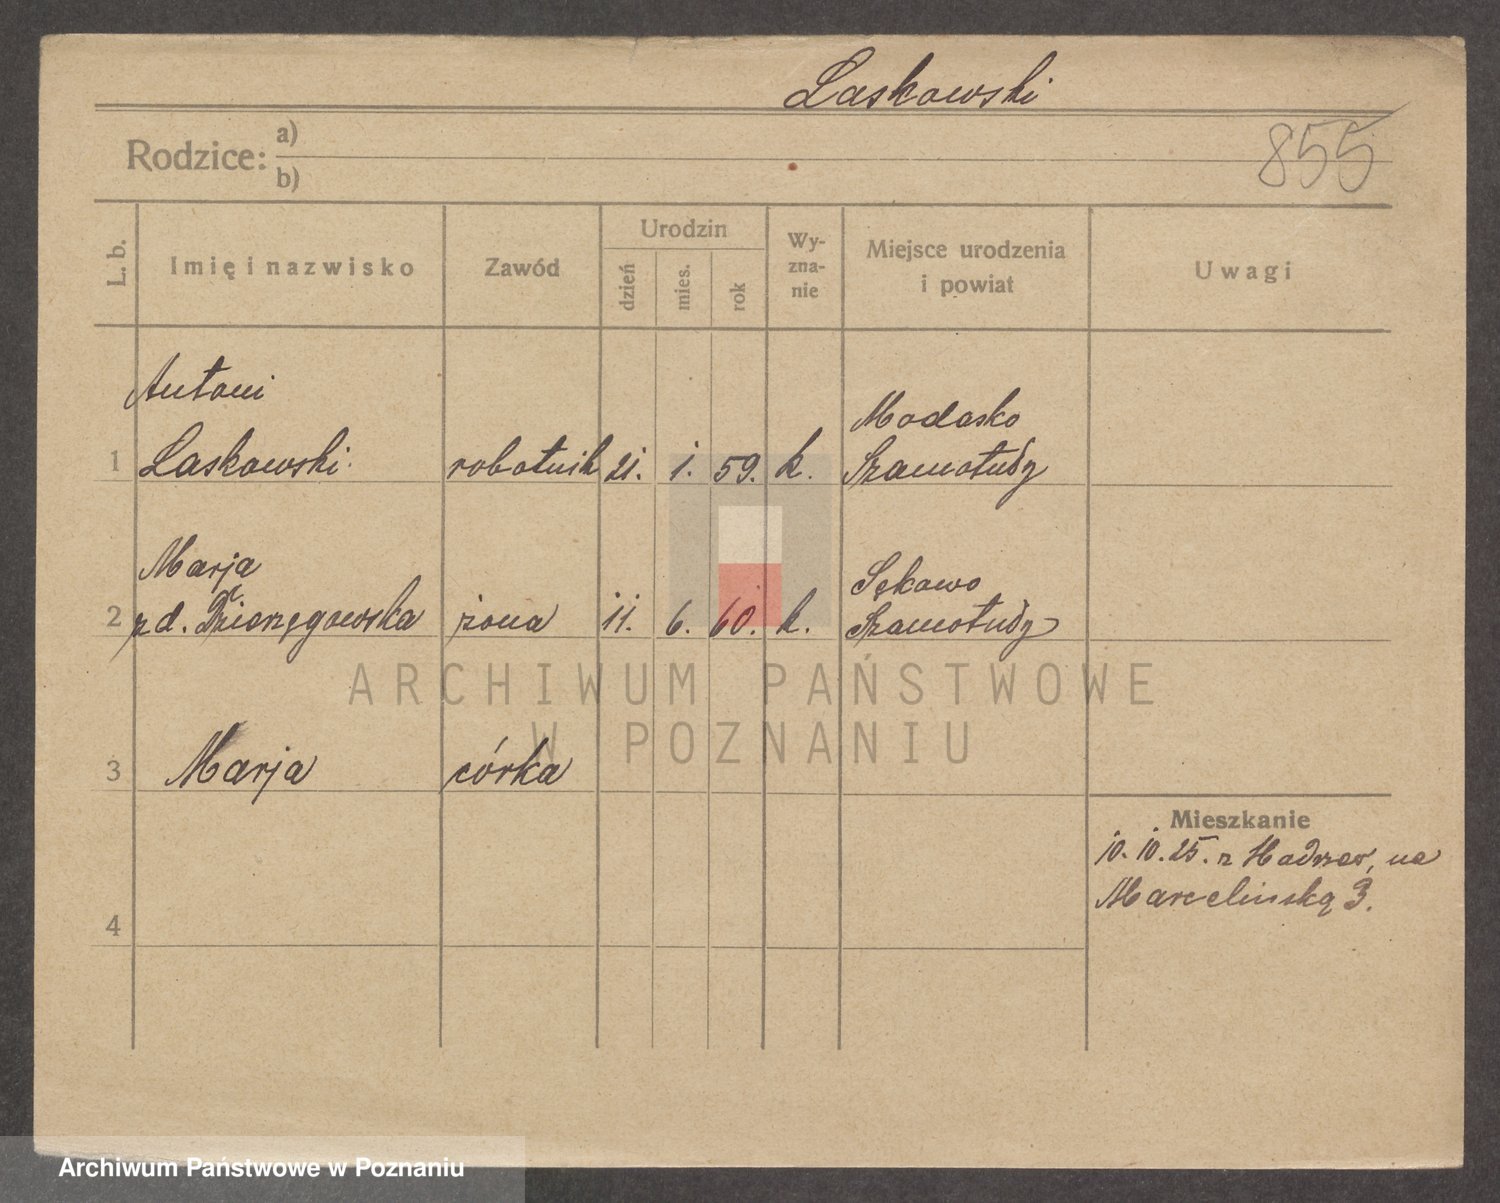 Laskowski
855
Rodzice: a)
b)
L. b.
Imię i nazwisko
Zawód
Urodzin
dzień
mies.
rok
Wy-
zna-
nie
Miejsce urodzenia
i powiat
Uwagi
Antoni
1 Laskowski robotnik 21. 1. 59. k.
Modasko
Szamotuły
Marja
2 żona 11. 6. 60. k.
Sękowo
Szamotuły
ARCHIWUM PAŃSTWOWE
W POZNANIU
3 Marja córka
Mieszkanie
10. 10. 25. z na
Marcelińską 3.
4
Archiwum Państwowe w Poznaniu